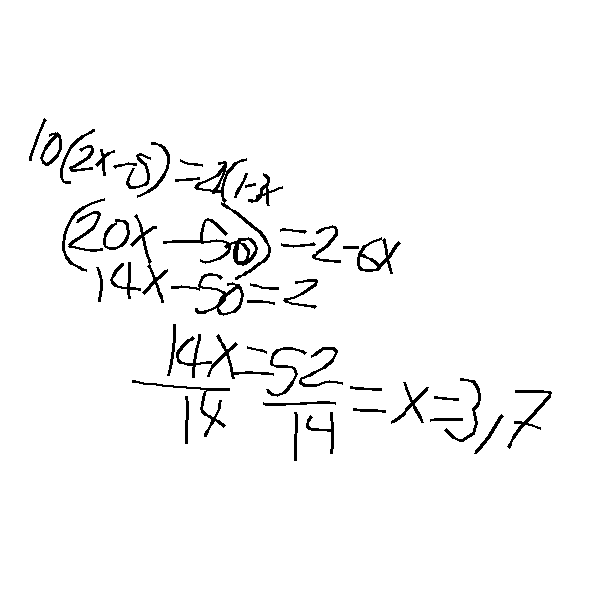 10(2x-5)=2(1-3x
(20x-50)=2-6x
14x-50=2
14x=52
14 14 =x=3,7